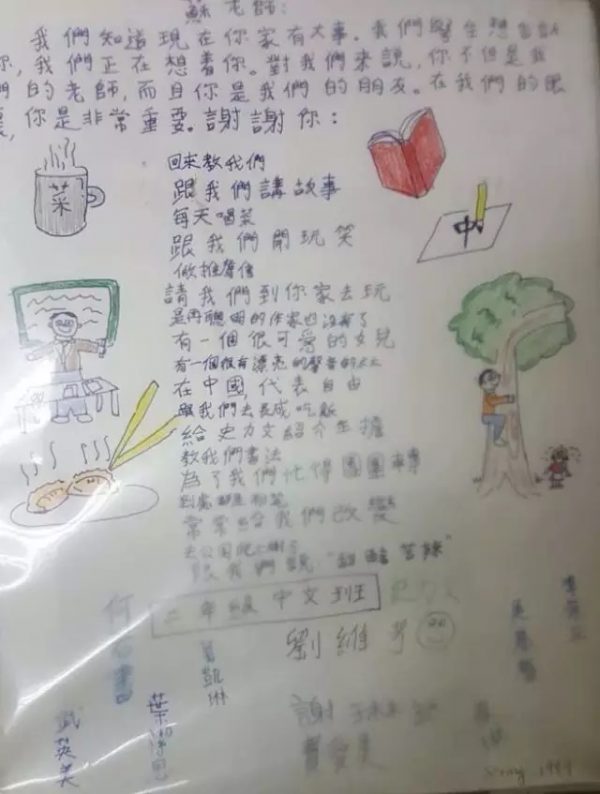 蘇老師:
我們知道現在你家有大事。我們學生想告訴
你,我們正在想着你。對我們來說,你不但是我
們的老師,而且你是我們的朋友。在我們的眼
裏,你是非常重要。謝謝你:
回來教我們
跟我們講故事
每天喝菜
跟我們開玩笑
做推薦信
請我們到你家去玩
是再聰明的作家也沒有了
有一個很可愛的女兒
有一個很有漂亮的聲音的太太
在中國,代表自由
跟我們去長城吃飯
給史力文紹介生擔
教我們書法
為了我們忙得團團轉
到處都是粉笔
常常給我們改變
去公園爬上樹了
跟我們說“甜酸苦辣”
菜
中
二年級中文班
史力文
劉維琴
何
凱琳
葉潔思
武英美
謝
Spring 1989